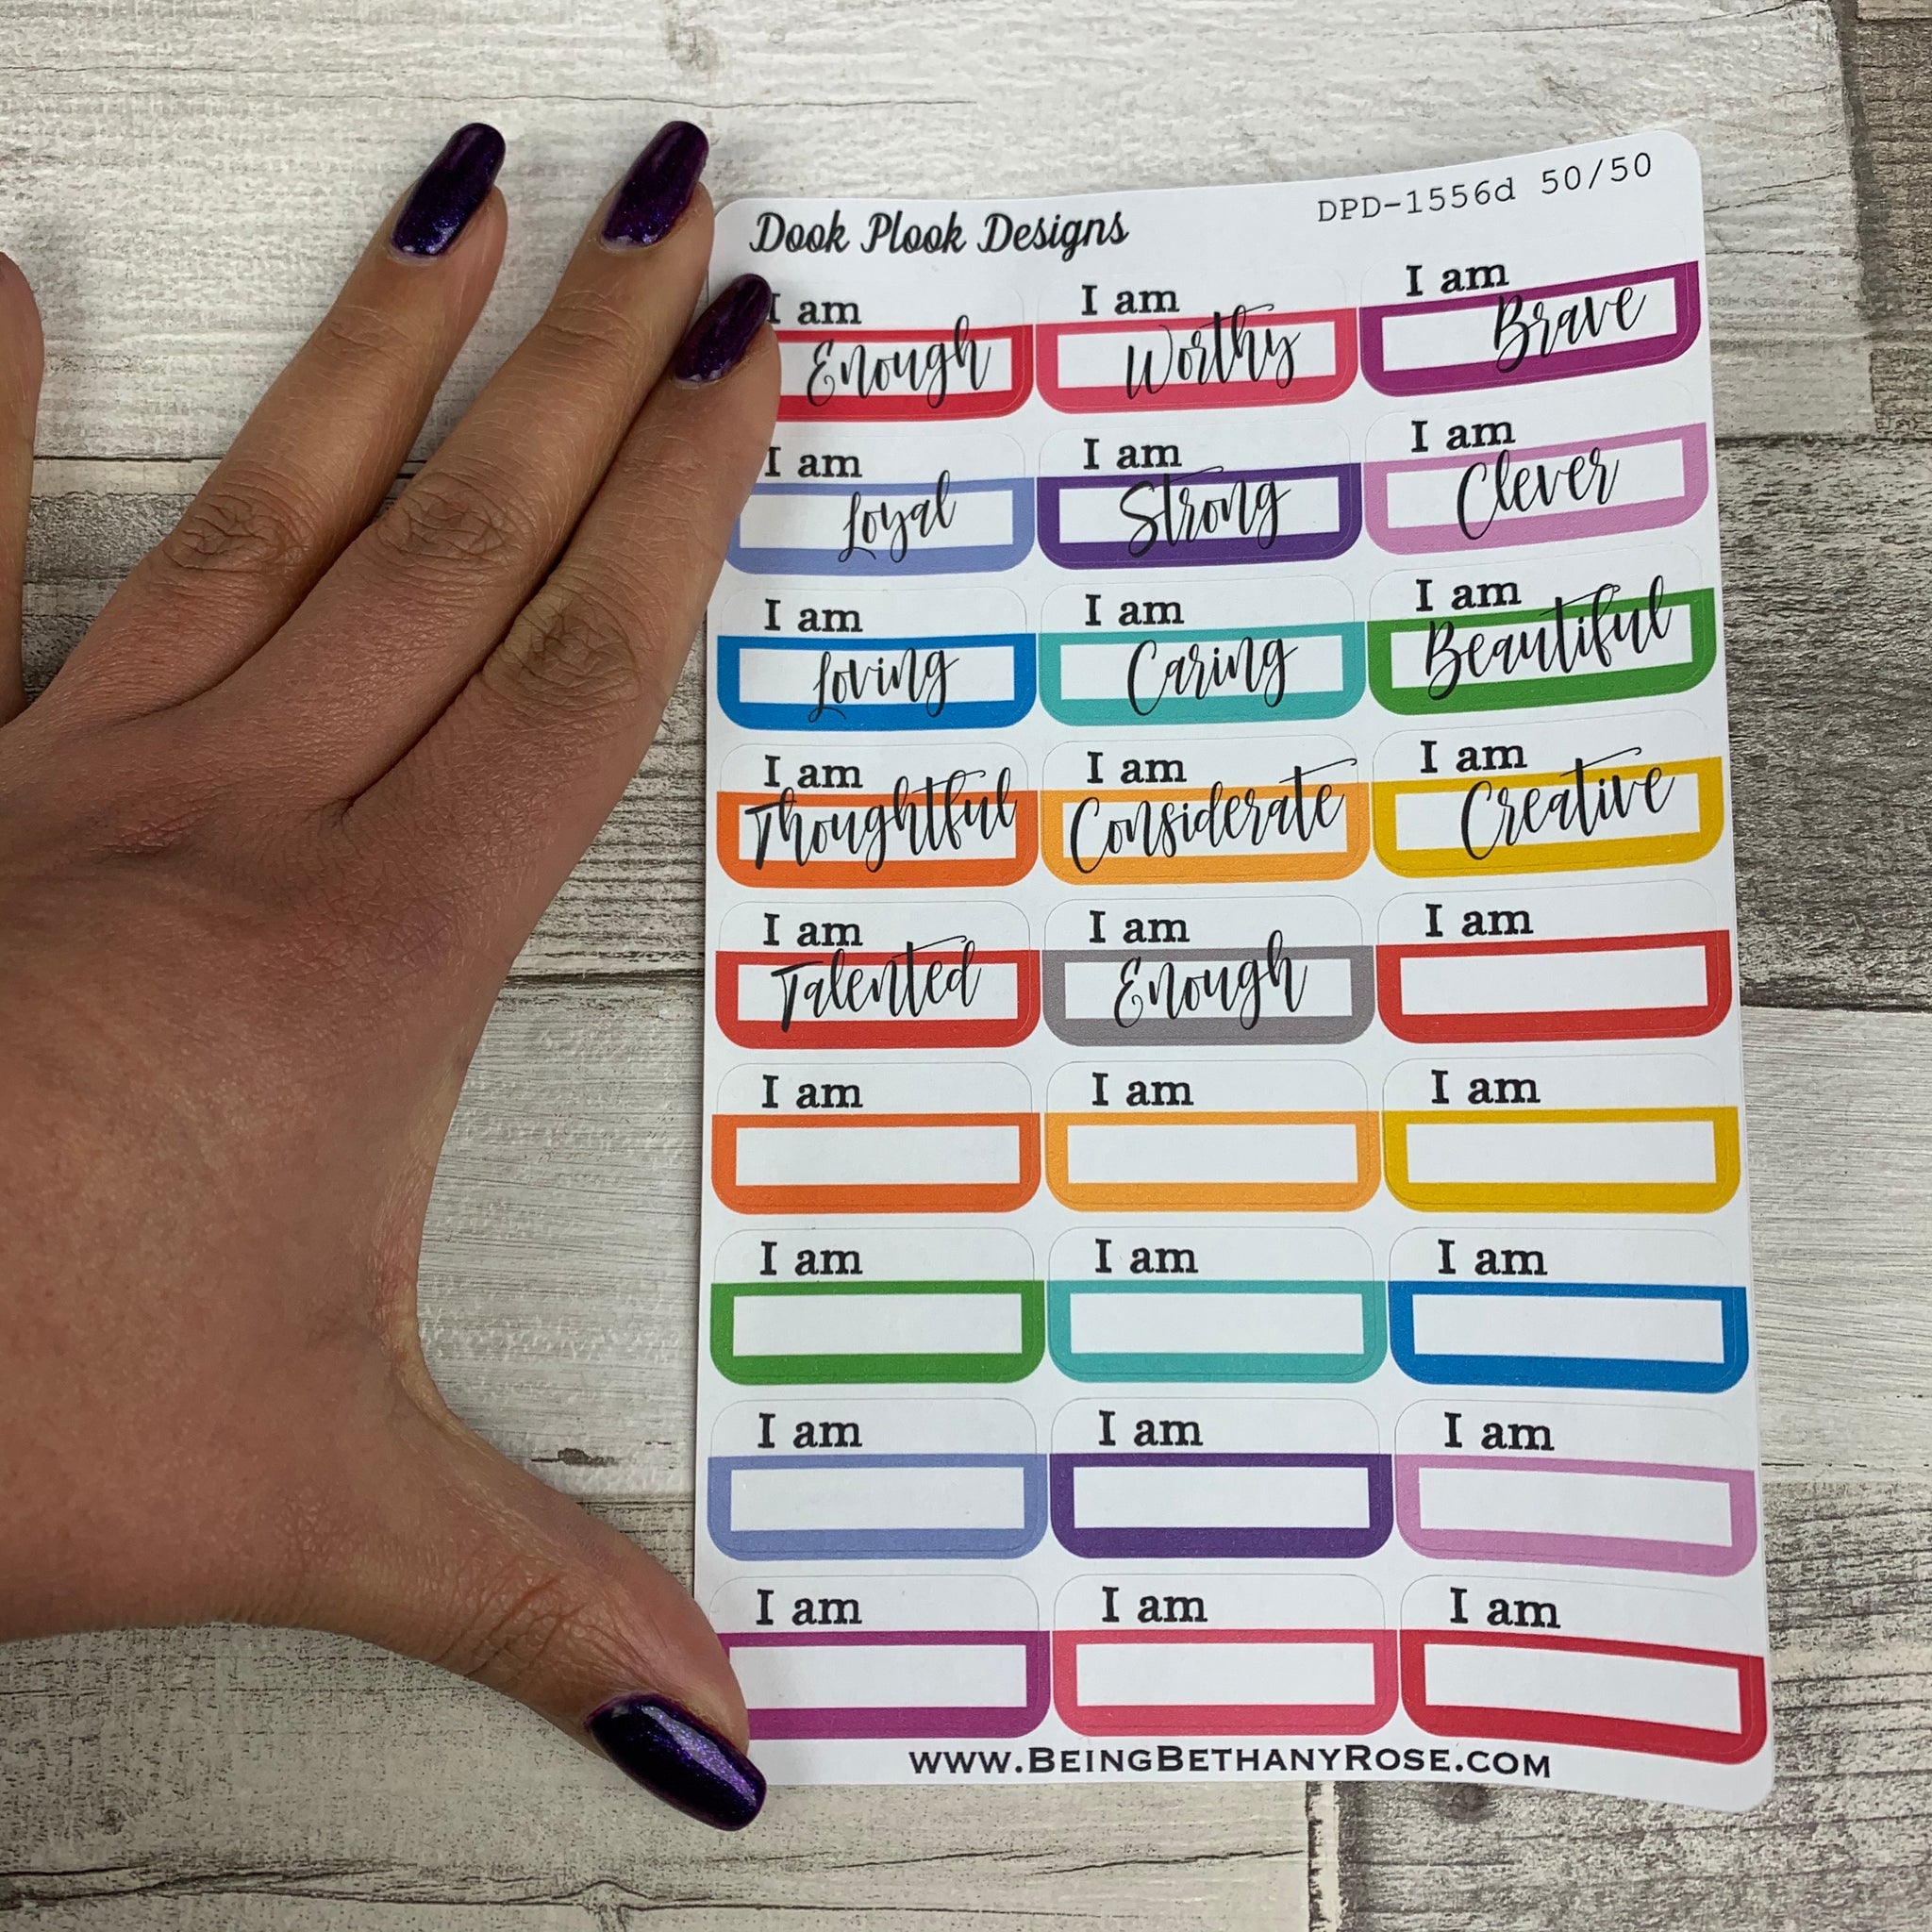 Dook Plook Designs
DPD-1556d 50/50
I am Enough
I am Worthy
I am Brave
I am Loyal
I am Strong
I am Clever
I am Loving
I am Caring
I am Beautiful
I am Thoughtful
I am Considerate
I am Creative
I am Talented
I am Enough
I am
I am
I am
I am
I am
I am
I am
I am
I am
I am
I am
I am
I am
www.BeingBethanyRose.com